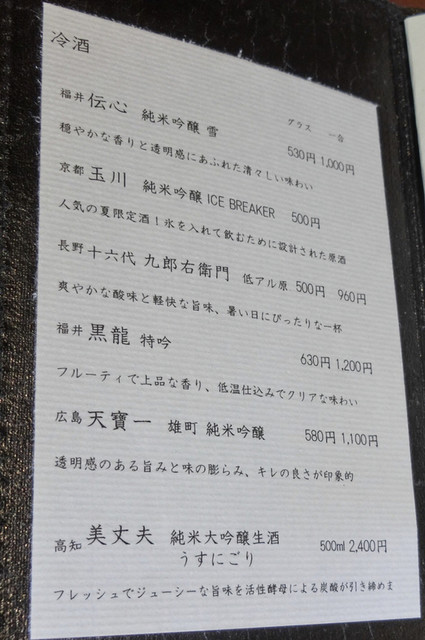 冷酒
グラス 一合
福井 伝心 純米吟醸 雪 530円 1,000円
穏やかな香りと透明感にあふれた清々しい味わい
京都 玉川 純米吟醸 ICE BREAKER 500円
人気の夏限定酒！氷を入れて飲むために設計された原酒
長野 十六代 九郎右衛門 低アル原 500円 960円
爽やかな酸味と軽快な旨味、暑い日にぴったりな一杯
福井 黒龍 特吟 630円 1,200円
フルーティで上品な香り、低温仕込みでクリアな味わい
広島 天寶一 雄町 純米吟醸 580円 1,100円
透明感のある旨みと味の膨らみ、キレの良さが印象的
高知 美丈夫 純米大吟醸生酒 500ml 2,400円
うすにごり
フレッシュでジューシーな旨味を活性酵母による炭酸が引き締めま